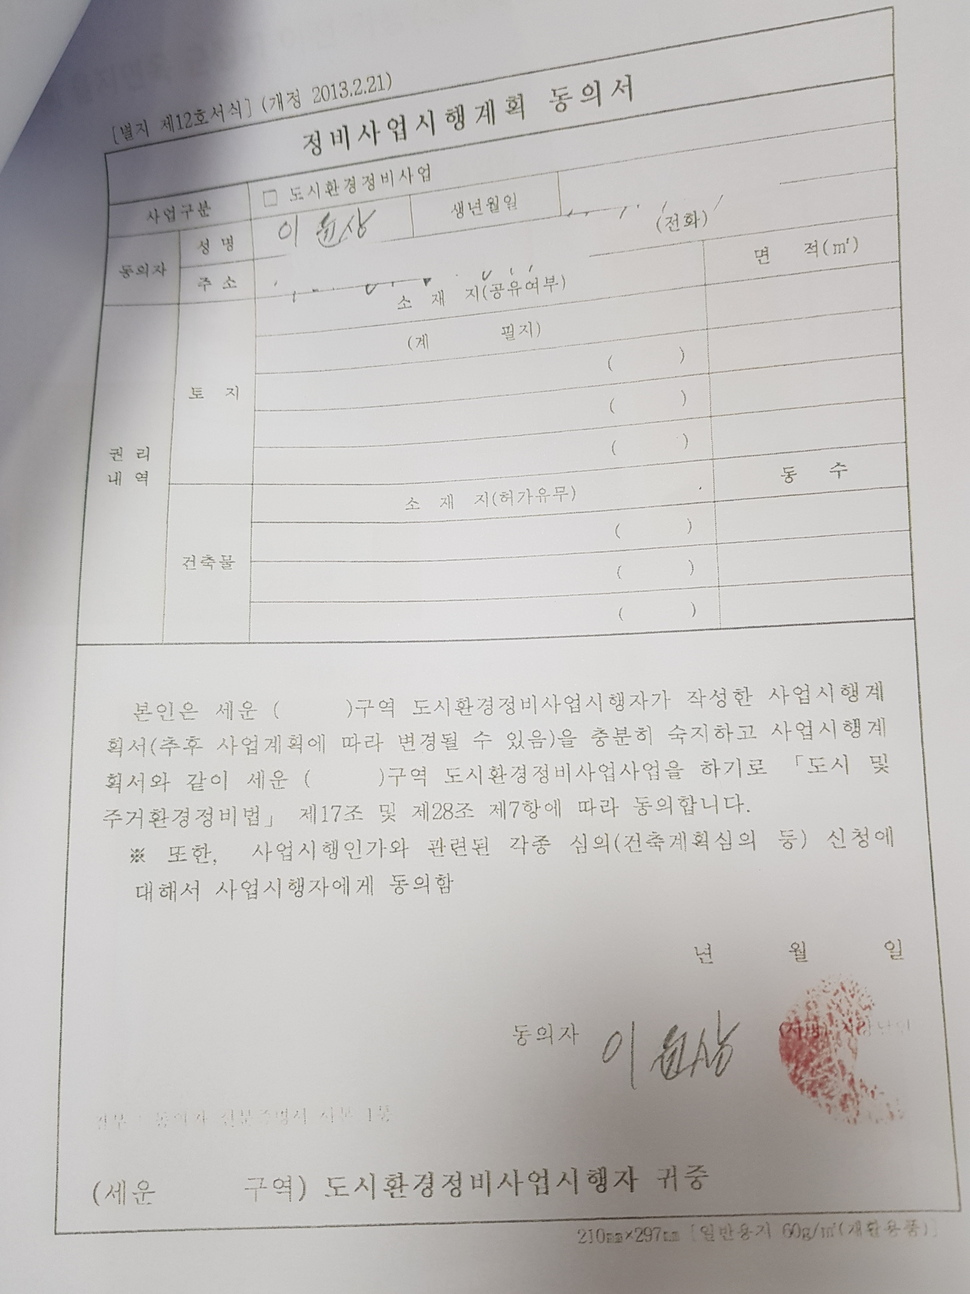 [별지 제12호서식] (개정 2013.2.21)
정비사업시행계획 동의서
사업구분 □ 도시환경정비사업
동의자 성 명 이윤상 생년월일
주 소 (전화)
권리내역 토 지 소 재 지(공유여부) 면 적(㎡)
(계 필지)
( )
( )
( )
건축물 소 재 지(허가유무) 동 수
( )
( )
( )
본인은 세운 ( )구역 도시환경정비사업시행자가 작성한 사업시행계
획서(추후 사업계획에 따라 변경될 수 있음)을 충분히 숙지하고 사업시행계
획서와 같이 세운 ( )구역 도시환경정비사업사업을 하기로 「도시 및
주거환경정비법」 제17조 및 제28조 제7항에 따라 동의합니다.
※ 또한, 사업시행인가와 관련된 각종 심의(건축계획심의 등) 신청에
대해서 사업시행자에게 동의함
년 월 일
동의자 이윤상
사본 1부
(세운 구역) 도시환경정비사업시행자 귀중
210mm×297mm [일반용지 60g/㎡(재활용품)]